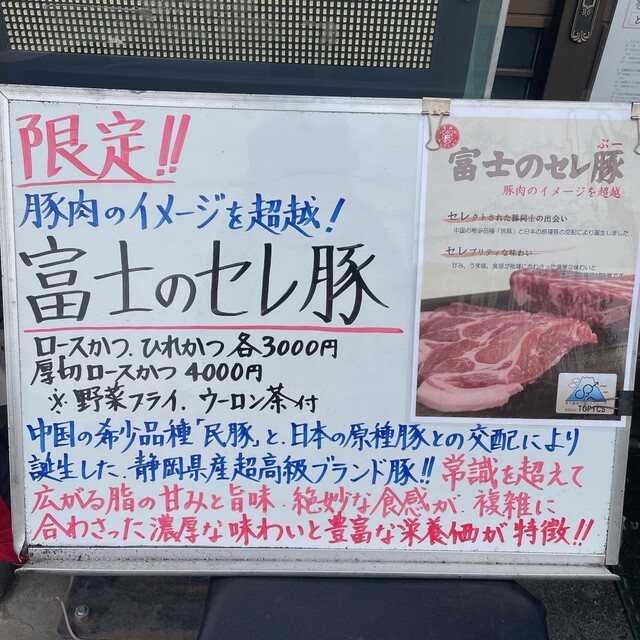 限定!!
豚肉のイメージを超越!
富士のセレ豚
ロースかつ、ひれかつ 各3000円
厚切ロースかつ 4000円
※野菜フライ、ウーロン茶付
中国の希少品種「民豚」と、日本の原種豚との交配により
誕生した、静岡県産超高級ブランド豚!! 常識を超えて
広がる脂の甘みと旨味、絶妙な食感が、複雑に
合わさった濃厚な味わいと豊富な栄養価が特徴!!
ぶー
富士のセレ豚
豚肉のイメージを超越
セレクトされた豚同士の出会い
中国の希少品種「民豚」と日本の原種豚の交配により誕生しました
セレブリティな味わい
甘み、うま味、食感が複雑に合わさった濃厚な味わいと
TOPICS